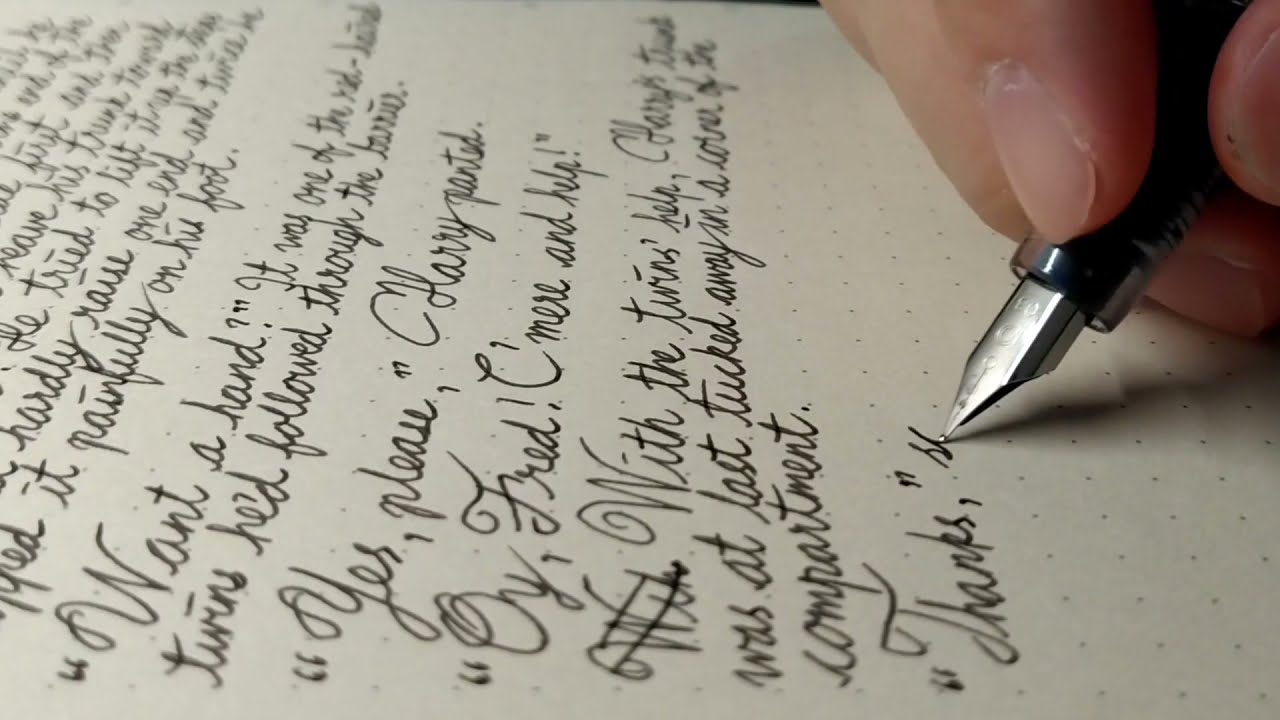 end of the
first and then
leave his trunk toward
He tried to lift it up the
hardly raise one end and twice he
it painfully on his foot.
"Want a hand?" It was one of the red-haired
twins he'd followed through the barrier.
"Yes, please," Harry panted.
"Oy, Fred! C'mere and help!"
With With the twins' help, Harry's trunk
was at last tucked away in a corner of the
compartment.
"Thanks," s